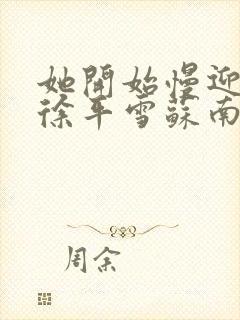 她開始慢迎
徐平雪蘇南
周余